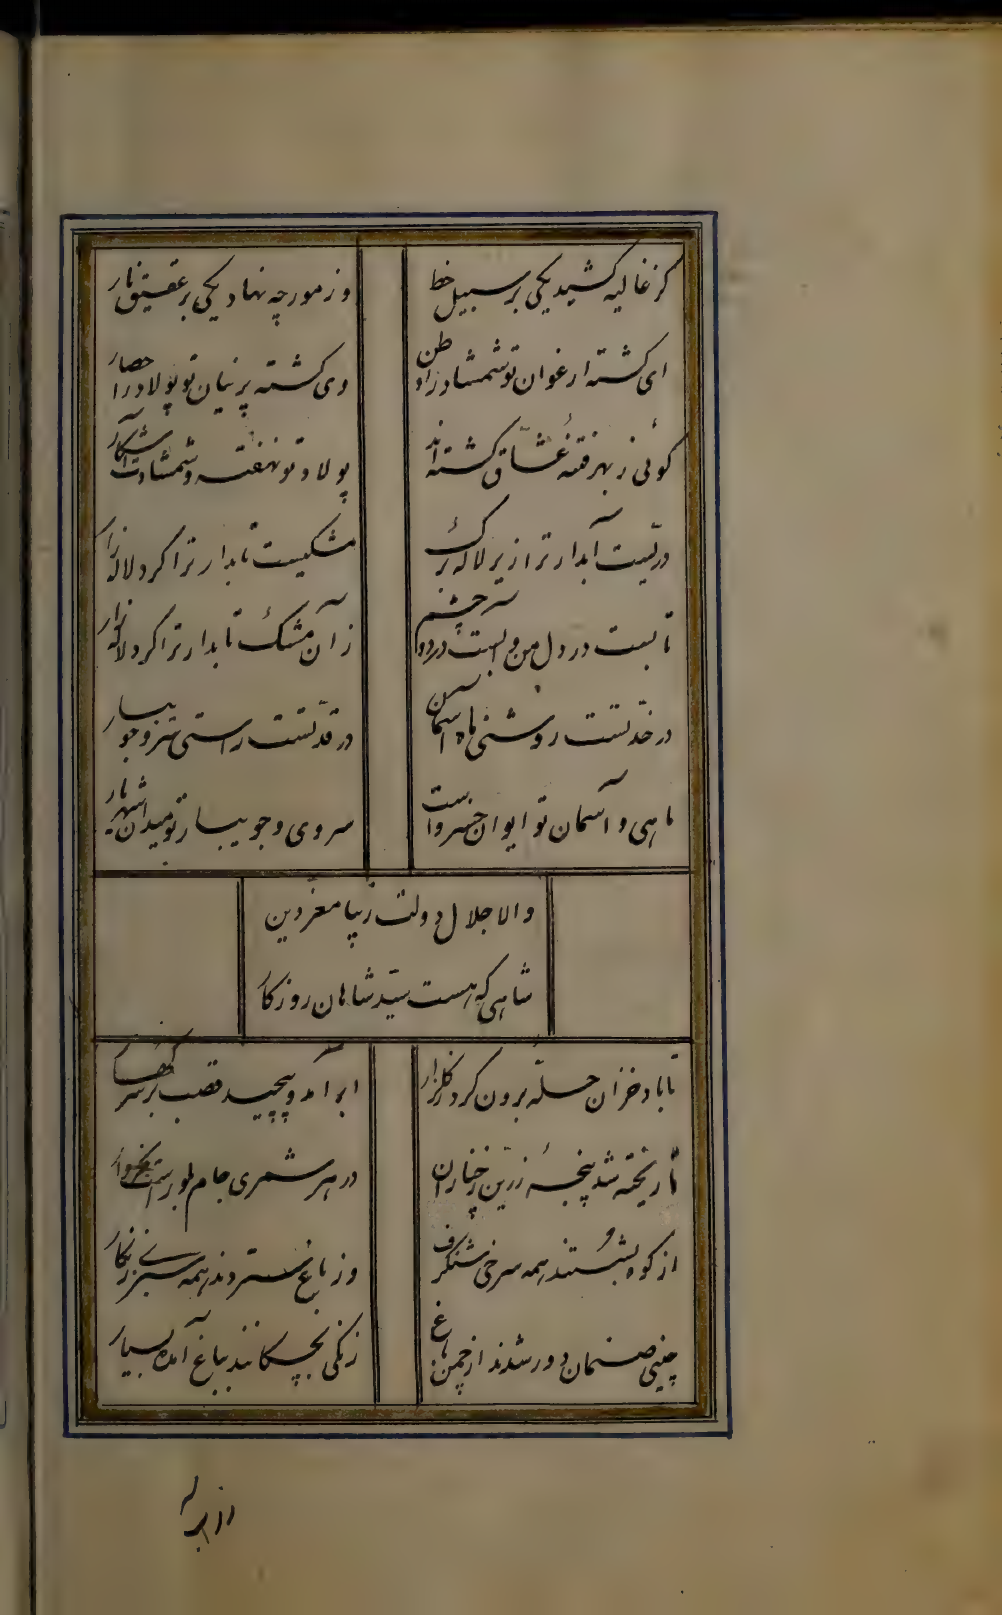 کر غالیه کشید یکی بر سبیل خط
وز مورچه نهاد یکی بر عقیق نار
ای کشته ارغوان تو شمشاد را وطن
وی کشته پرنیان تو پولاد را حصار
کوئی ز بهر فتنه عشاق کشته اند
پولاد تو نهفته و شمشادت آشکار
دریست آبدار ترا زیر لاله برک
مشکیست تابدار ترا کرد لاله زار
تا بست در دل من و بست در دو چشم
زان مشک تابدار ترا کرد لاله زار
در خد تست روشنی ماه آسمان
در قد تست راستی سرو جویبار
ماهی و آسمان تو ایوان خسرواست
سروی و جویبار تو میدان شهریار
والا جلال دولت زیبا معز دین
شاهی که هست سید شاهان روزکار
تا باد خزان حله برون کرد ز کلزار
ابر آمد و پیچید قصب بر سر کهسار
تا ریخته شد پنجه زرین چناران
در هر شمری جام بلور است
از کوه بشستند همه سرخی شنکرف
وز باغ ستردند همه سبزی زنکار
چینی صنمان دور شدند از چمن باغ
زنکی بچکانند بباغ آمده بسیار
از ابر